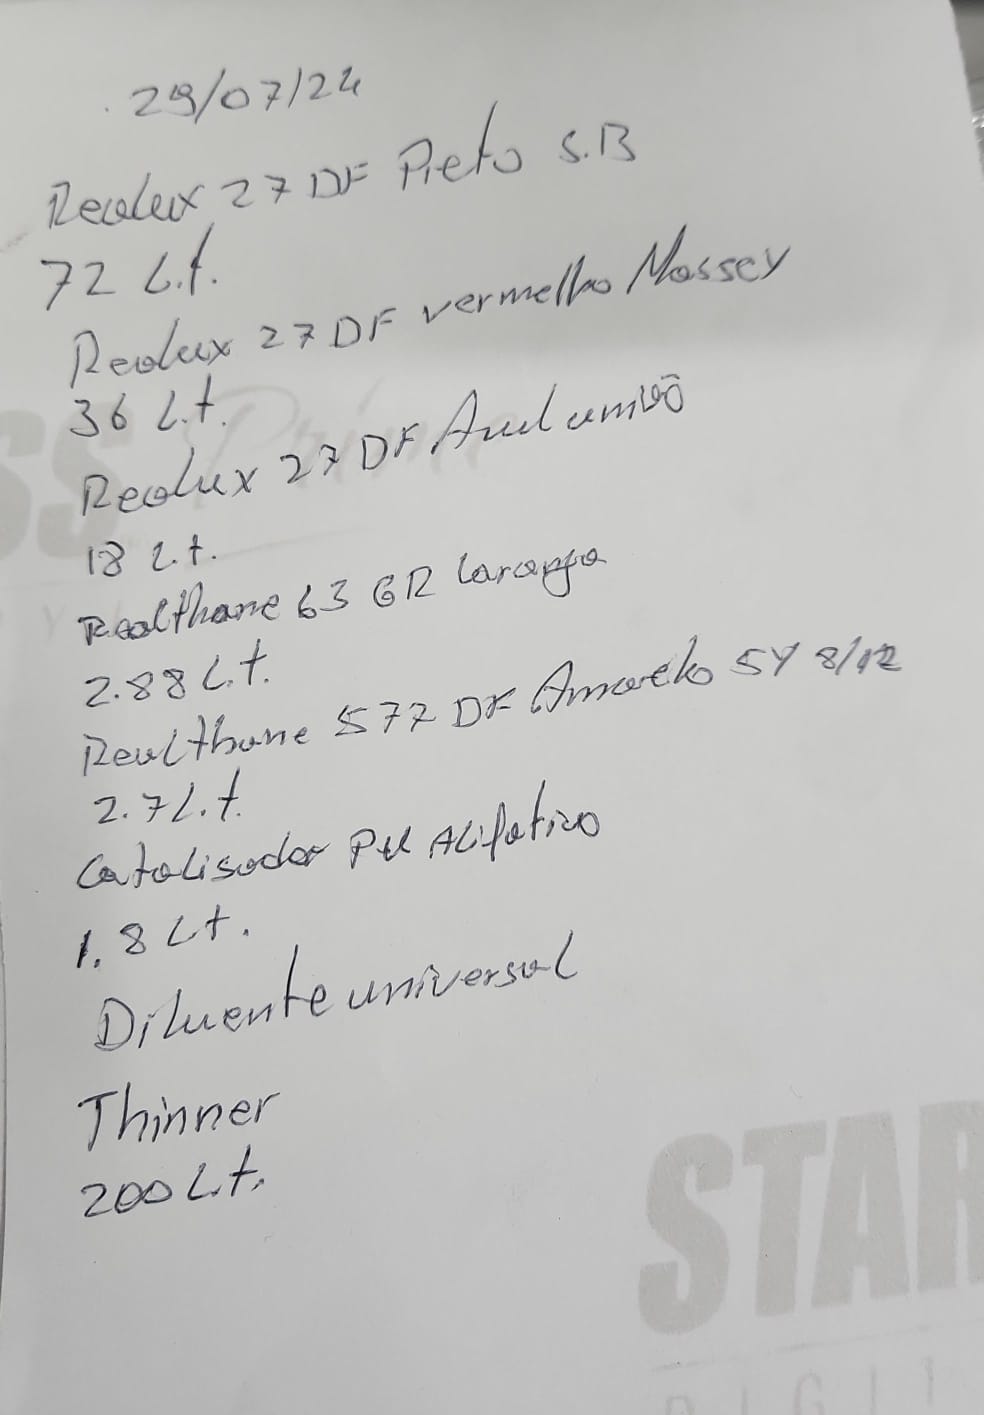 29/07/24
Realux 27 DF Preto S.B
72 L.t.
Realux 27 DF vermelho Massey
36 L.t.
Realux 27 DF Azul união
18 L.t.
Realthane 63 GR laranja
2.88 L.t.
Realthane 577 DF Amarelo 5Y 8/12
2.7 L.t.
Catalisador PU Alifatico
1.8 Lt.
Diluente universal
Thinner
200 L.t.
SS Prime
STAR
DIGIT